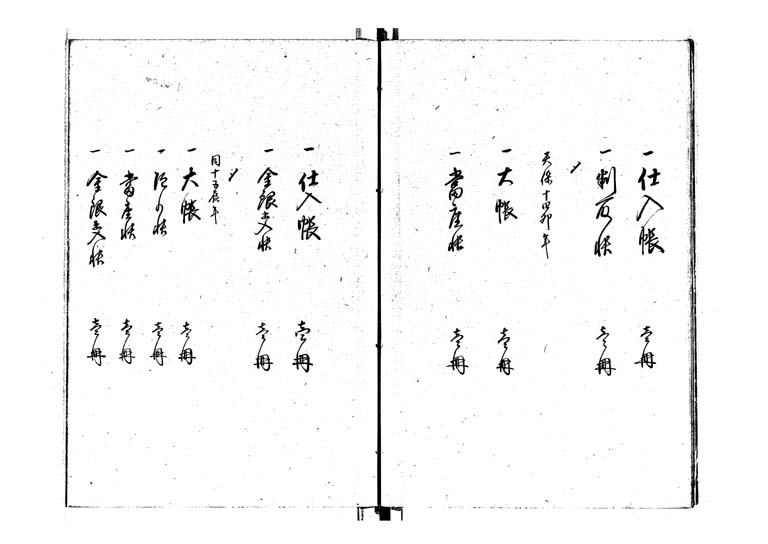 一仕入帳 壹冊
一判取帳 壹冊
天保十四卯年
一大帳 壹冊
一當座帳 壹冊
一仕入帳 壹冊
一金銀出入帳 壹冊
同十五辰年
一大帳 壹冊
一 壹冊
一當座帳 壹冊
一金銀出入帳 壹冊